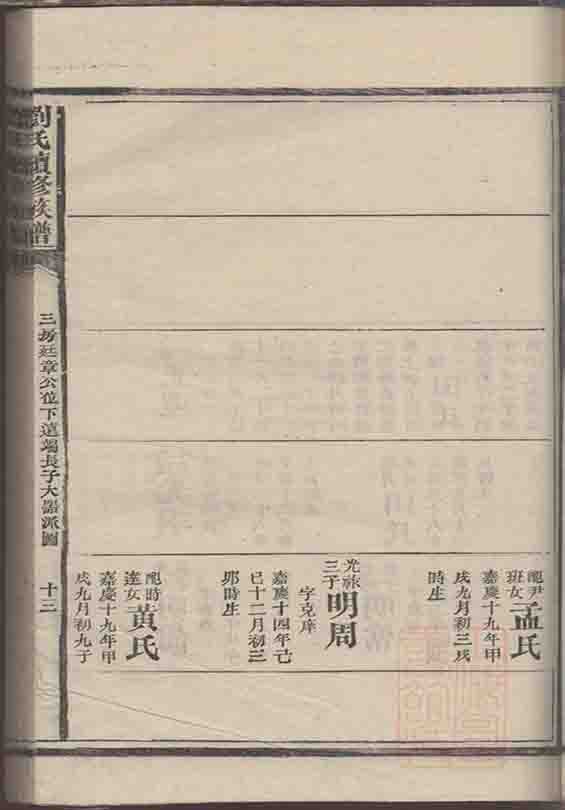 配尹
班女
孟氏
嘉慶十九年甲
戌九月初三戌
時生
光旅
三子
明周
字克庠
嘉慶十四年己
巳十二月初三
卯時生
配時
達女
黄氏
嘉慶十九年甲
戌九月初九子
劉氏續修族譜
三房廷章公位下這端長子大器派圖
十三